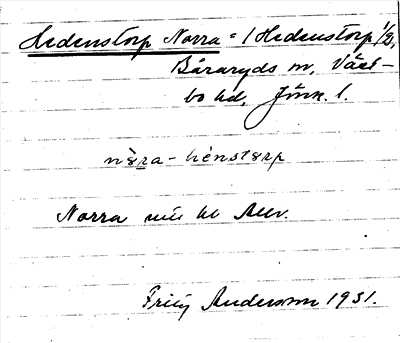 Hedenstorp Norra = 1 Hedenstorp 1/2,
Båraryds sn, Väst-
bo hd, Jönk. l.
nè̱ra - hénstɵrp
Norra
Fritz Anderson 1931.